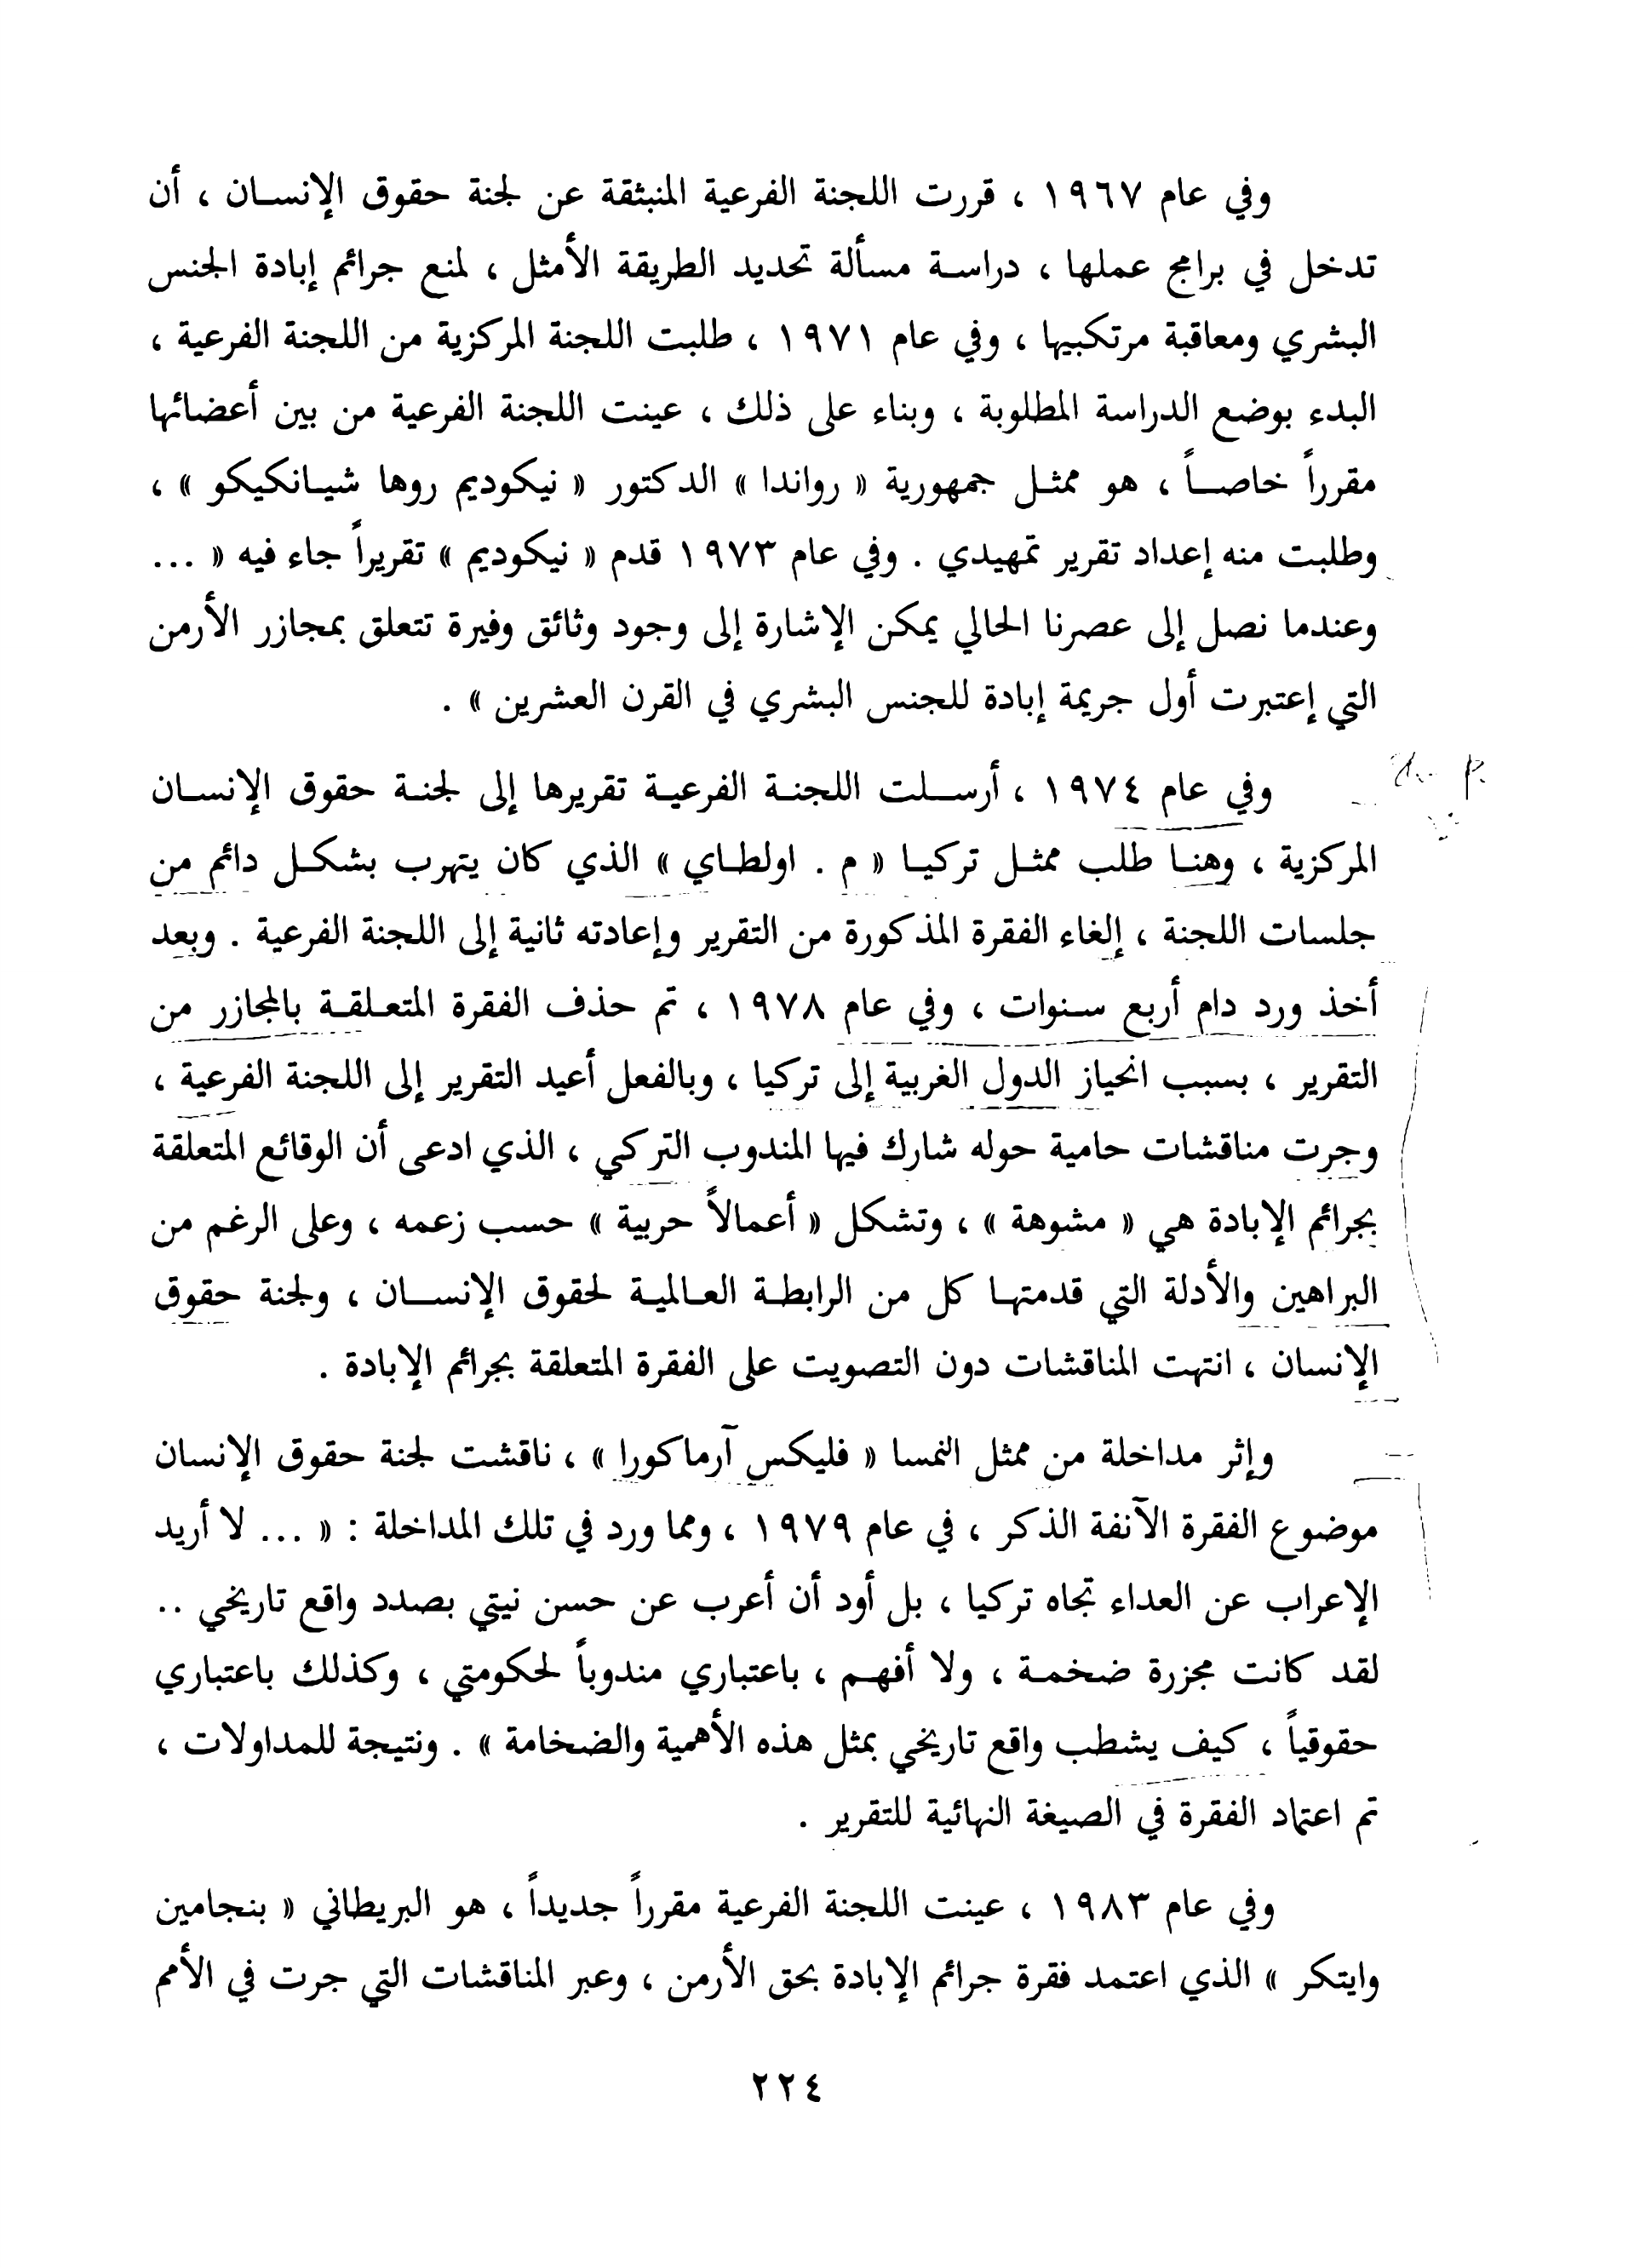 وفي عام ١٩٦٧ ، قررت اللجنة الفرعية المنبثقة عن لجنة حقوق الإنسـان ، أن
تدخل في برامج عملها ، دراسـة مسألة تحديد الطريقة الأمثل ، لمنع جرائم إبادة الجنس
البشري ومعاقبة مرتكبيها ، وفي عام ١٩٧١ ، طلبت اللجنة المركزية من اللجنة الفرعية ،
البدء بوضع الدراسة المطلوبة ، وبناء على ذلك ، عينت اللجنة الفرعية من بين أعضائها
مقرراً خاصـاً ، هو ممثـل جمهورية « رواندا » الدكتور « نيكوديم روها شيـانكيكو » ،
وطلبت منه إعداد تقرير تمهيدي . وفي عام ١٩٧٣ قدم « نيكوديم » تقريراً جاء فيه « ...
وعندما نصل إلى عصرنا الحالي يمكن الإشارة إلى وجود وثائق وفيرة تتعلق بمجازر الأرمن
التي إعتبرت أول جريمة إبادة للجنس البشري في القرن العشرين » .
وفي عام ١٩٧٤ ، أرسـلت اللجنـة الفرعيـة تقريرها إلى لجنـة حقوق الإنسـان
المركزية ، وهنـا طلب ممثـل تركيـا « م . اولطـاي » الذي كان يتهرب بشكـل دائم من
جلسات اللجنة ، إلغاء الفقرة المذكورة من التقرير وإعادته ثانية إلى اللجنة الفرعية . وبعد
أخذ ورد دام أربع سـنوات ، وفي عام ١٩٧٨ ، تم حذف الفقرة المتعـلقـة بالمجازر من
التقرير ، بسبب انحياز الدول الغربية إلى تركيا ، وبالفعل أعيد التقرير إلى اللجنة الفرعية ،
وجرت مناقشات حامية حوله شارك فيها المندوب التركي ، الذي ادعى أن الوقائع المتعلقة
بجرائم الإبادة هي « مشوهة » ، وتشكل « أعمالاً حربية » حسب زعمه ، وعلى الرغم من
البراهين والأدلة التي قدمتهـا كل من الرابطـة العـالميـة لحقوق الإنسـان ، ولجنة حقوق
الإنسان ، انتهت المناقشات دون التصويت على الفقرة المتعلقة بجرائم الإبادة .
وإثر مداخلة من ممثل النمسا « فليكس آرماكورا » ، ناقشت لجنة حقوق الإنسان
موضوع الفقرة الآنفة الذكر ، في عام ١٩٧٩ ، ومما ورد في تلك المداخلة : « ... لا أريد
الإعراب عن العداء تجاه تركيا ، بل أود أن أعرب عن حسن نيتي بصدد واقع تاريخي ..
لقد كانت مجزرة ضخمـة ، ولا أفهـم ، باعتباري مندوباً لحكومتي ، وكذلك باعتباري
حقوقياً ، كيف يشطب واقع تاريخي بمثل هذه الأهمية والضخامة » . ونتيجة للمداولات ،
تم اعتماد الفقرة في الصيغة النهائية للتقرير .
وفي عام ١٩٨٣ ، عينت اللجنة الفرعية مقرراً جديداً ، هو البريطاني « بنجامين
وايتكر » الذي اعتمد فقرة جرائم الإبادة بحق الأرمن ، وعبر المناقشات التي جرت في الأمم
٢٢٤